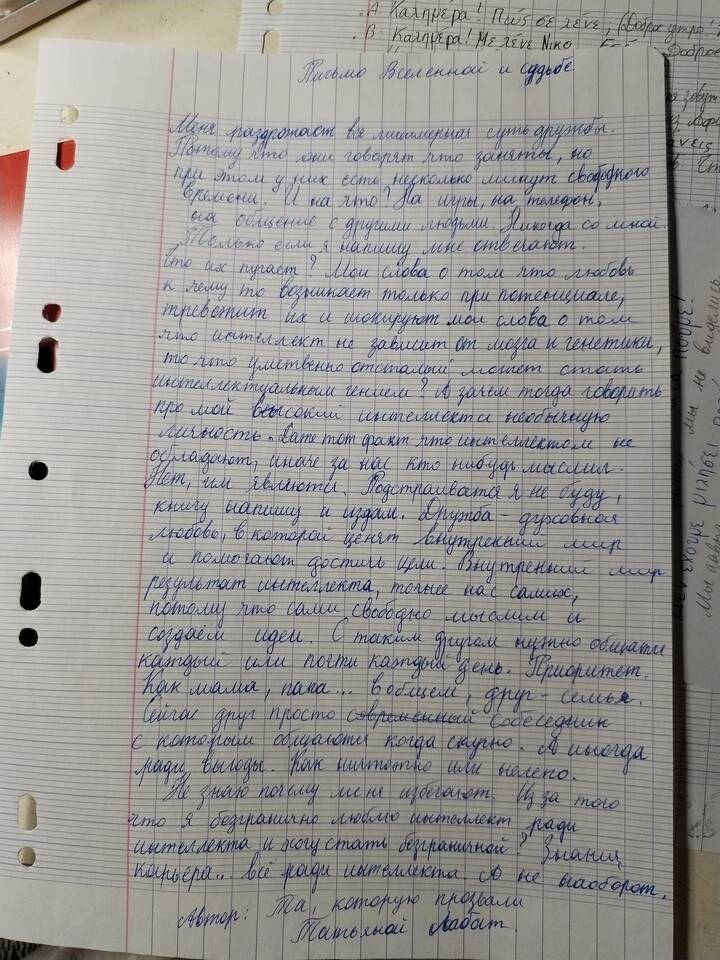 А. Καλημέρα! Πώς σε λένε; (Доброе утро!
В. Καλημέρα! Με λένε Νίκο
Доброе
Письмо Вселенной и судьбе
Меня раздрожает вся лицимерная суть дружбы.
Потому что они говорят что заняты, но
при этом у них есть несколько минут свободного
времени. И на что? На игры, на телефон,
на общение с другими людьми. Никогда со мной.
Только если я напишу мне отвечают.
Что их пугает? Мои слова о том что любовь
к чему то возникает только при потенциале,
тревожит их и шокируют мои слова о том
что интеллект не зависит от мозга и генетики,
то что умственно отсталый может стать
интеллектуальным гением? А зачем тогда говорить
про мой высокий интеллект и необычную
личность. Дате тот факт что интеллектом не
обладают, иначе за нас кто нибудь мыслил.
Нет, им являются. Подстраиватся я не буду,
книгу напишу и издам. Дружба - духовная
любовь, в которой ценят внутренний мир
и помогают достичь цели. Внутренний мир
результат интеллекта, точнее нас самих,
потому что сами свободно мыслим и
создаём идеи. С таким другом нужно общатся
каждый или почти каждый день. Приоритет.
Как мама, папа... вобщем, друг - семья.
Сейчас друг просто современный собеседник
с которым общаются когда скучно. А иногда
ради выгоды. Как ничтожно или нелепо.
Не знаю почему меня избегают. Из за того
что я безгранично люблю интеллект ради
интеллекта и могу стать безграничной? Знания,
карьера... всё ради интеллекта. А не наоборот.
Автор: Та, которую прозвали
Татьяной Лабат.
мы не виделись